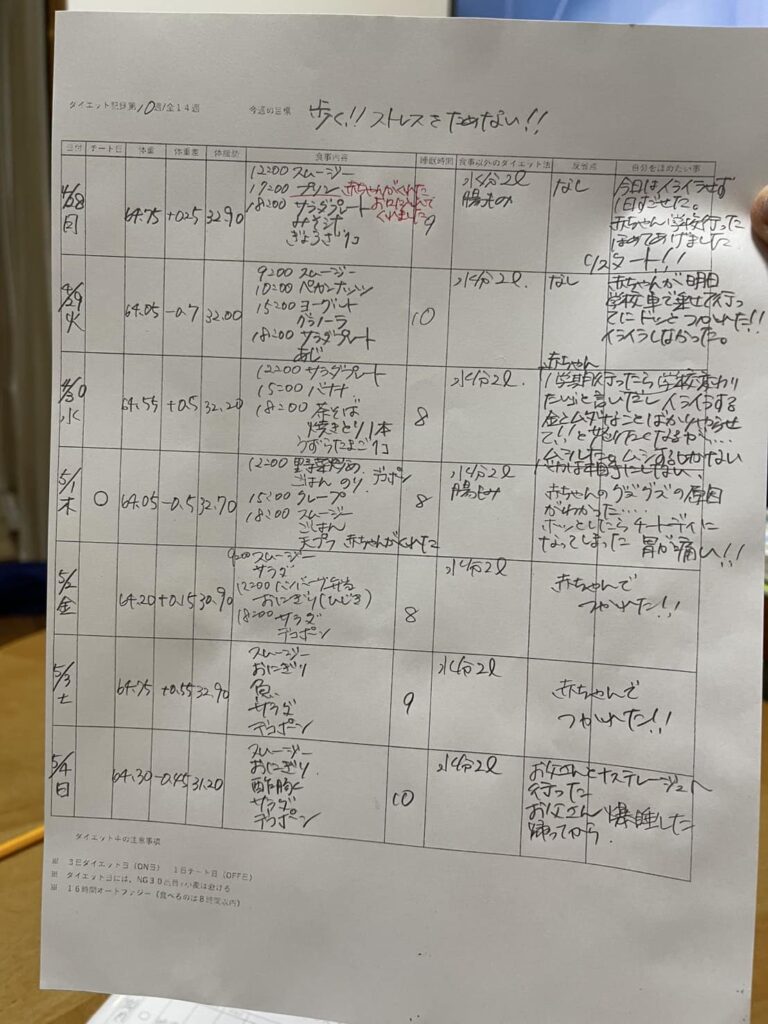 ダイエット記録第10週/全14週 今週の目標 歩く!! ストレスをためない!!
日付 チート日 体重 体重差 体脂肪 食事内容 睡眠時間 食事以外のダイエット法 反省点 自分をほめたい事
4/28
月
64.75 +0.5 32.90
12:00 スムージー
17:00 プリン 赤ちゃんがくれた
18:00 サラダプレート
みそ汁
ぎょうざ1コ
9
水分2ℓ
腸もみ
なし
今日はイライラせず
1日すごせた。
赤ちゃん学校行った
ほめてあげました
4/29
火
64.05 -0.7 32.00
9:00 スムージー
10:00 ペカンナッツ
15:00 ヨーグルト
グラノーラ
18:00 サラダプレート
あじ
10
水分2ℓ.
なし
赤ちゃんが明日
学校車で乗せて行っ
てにドッとつかれた!!
イライラしなかった。
4/30
水
64.55 +0.5 32.20
12:00 サラダプレート
15:00 バナナ
18:00 茶そば
焼きとり1本
うずらたまご1コ
8
水分2ℓ.
赤ちゃん
1学期行ったら学校変わり
たいと言いだしイライラする
ムシした。ムシするしかない
5/1
木
○
64.05 -0.5 32.70
12:00 野菜炒め
ごはん のり. デコポン
15:00 クレープ
18:00 スムージー
ごはん
天プラ 赤ちゃんがくれた
8
水分2ℓ
腸もみ
赤ちゃんのグズグズの原因
がわかった.....
ホッとしたらチートデイに
なってしまった 胃が痛い!!
5/2
金
64.20 +0.15 30.90
9:00 スムージー
サラダ
12:00 ハンバーグ弁当
おにぎり(ひじき)
18:00 サラダ
デコポン
8
水分2ℓ
赤ちゃんで
つかれた!!
5/3
土
64.75 +0.55 32.90
スムージー
おにぎり
魚
サラダ
デコポン
9
水分2ℓ
赤ちゃんで
つかれた!!
5/4
日
64.30 -0.45 31.20
スムージー
おにぎり
酢豚
サラダ
デコポン
10
水分2ℓ
お父さんと
行った
お父さん爆睡した
帰ってから
ダイエット中の注意事項
※ 3日ダイエット日(ON日) 1日チート日(OFF日)
※ 16時間オートファジー(食べるのは8時間以内)